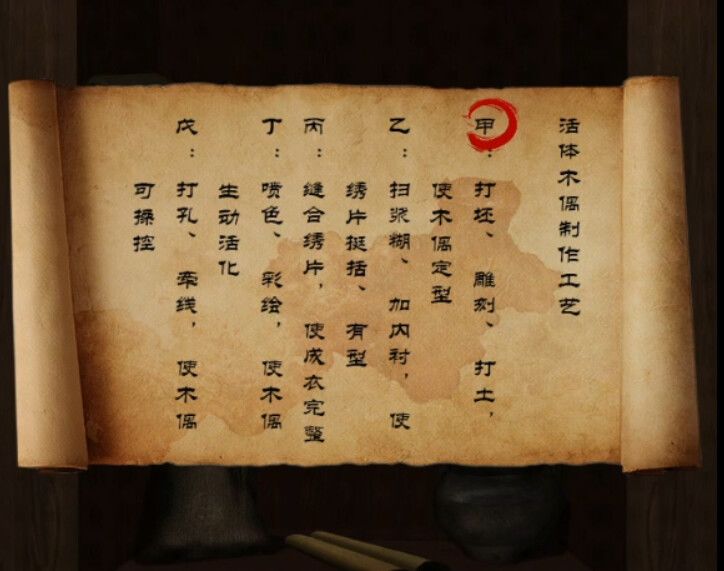 活体木偶制作工艺
甲：打坯、雕刻、打土，
使木偶定型
乙：扫浆糊、加内衬，使
绣片挺括、有型
丙：缝合绣片，使成衣完整
丁：喷色、彩绘，使木偶
生动活化
戊：打孔、牵线，使木偶
可操控